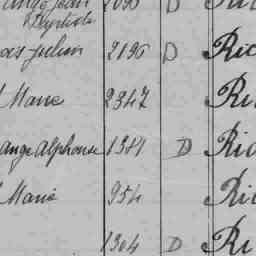 Jean 2090 D Ric
Baptiste
Julien 2196 D Ric
Marie 2347 Ric
Ange Alphonse 1381 D Ric
Marie 954 Ric
1304 D Ri